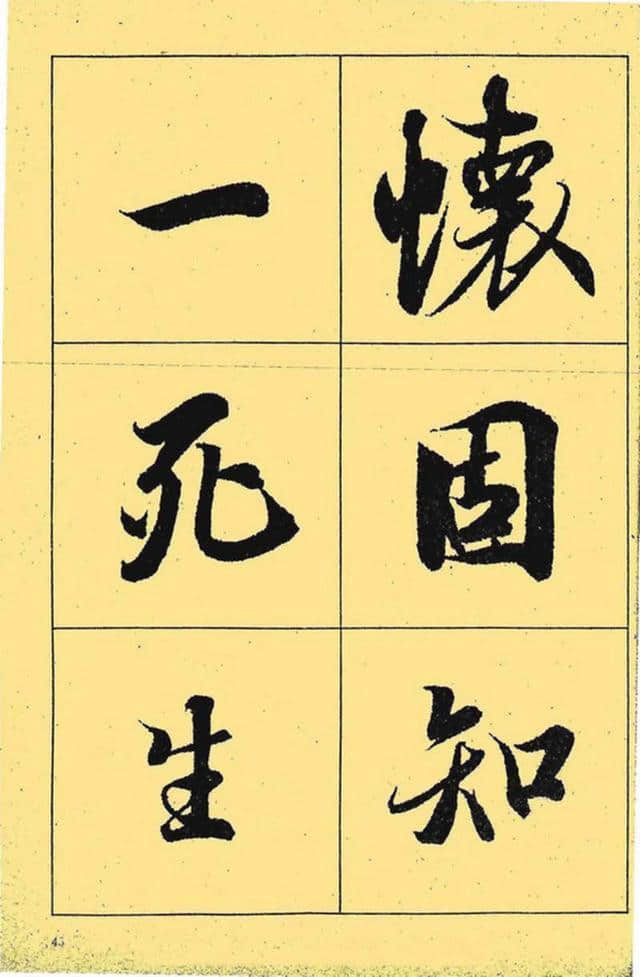 懷固知
一死生
45